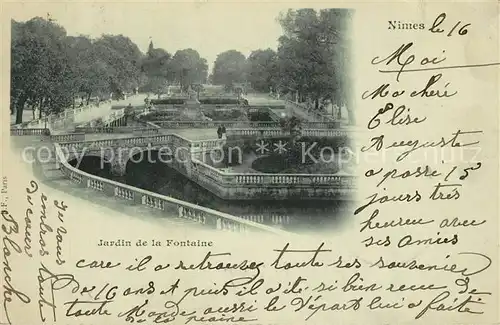 Nimes le 16
Moi
Ma chéré
Elise
Auguste
a passé 15
jours très
heureu avec
ses amies
Jardin de la Fontaine
care il a retrouvez toute ses souvenir
De 16 ans et puis il a ite si bien recu de
toute Monde aussi le Départ lui a faité
De la paine
Je vous
embras tout
Du cœur
Blanche
F., Paris
Postcards